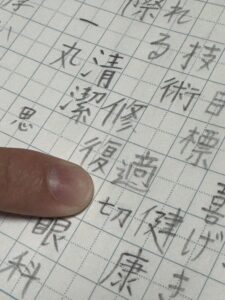 喜
げ
目標
健康
技術
適切
れる
修復
清潔
眼科
一丸
思